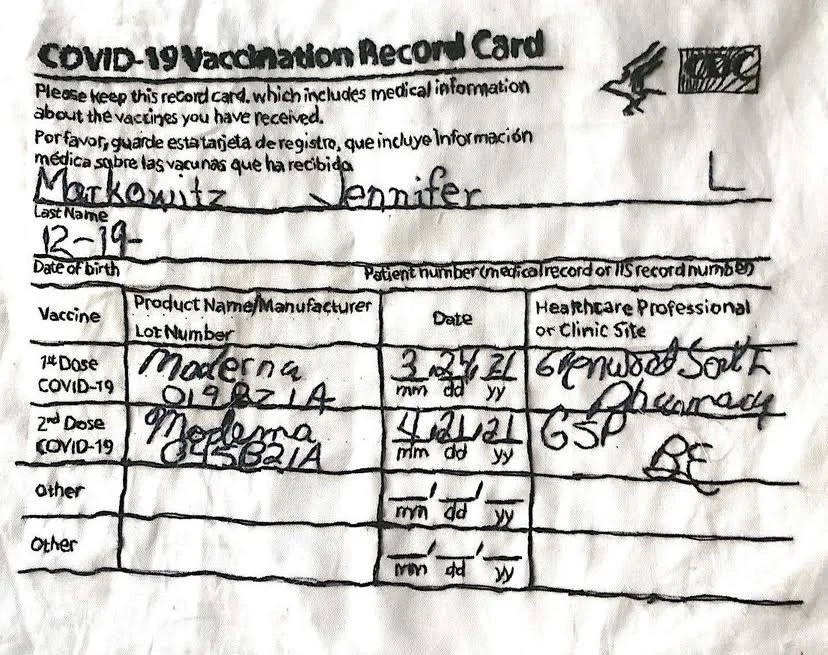 COVID-19 Vaccination Record Card
CDC
Please keep this record card, which includes medical information
about the vaccines you have received.
Por favor, guarde esta tarjeta de registro, que incluye Información
médica sobre las vacunas que ha recibido
Markowitz Jennifer L
Last Name
12-19-
Date of birth Patient number (medical record or IIS record number)
Vaccine Product Name/Manufacturer Date Healthcare Professional
Lot Number or Clinic Site
1st Dose Moderna 3 24 21 Greenwood South
COVID-19 019B21A mm dd yy Pharmacy
2nd Dose Moderna 4 21 21 GSP
COVID-19 045B21A mm dd yy BE
Other / /
mm dd yy
Other / /
mm dd yy